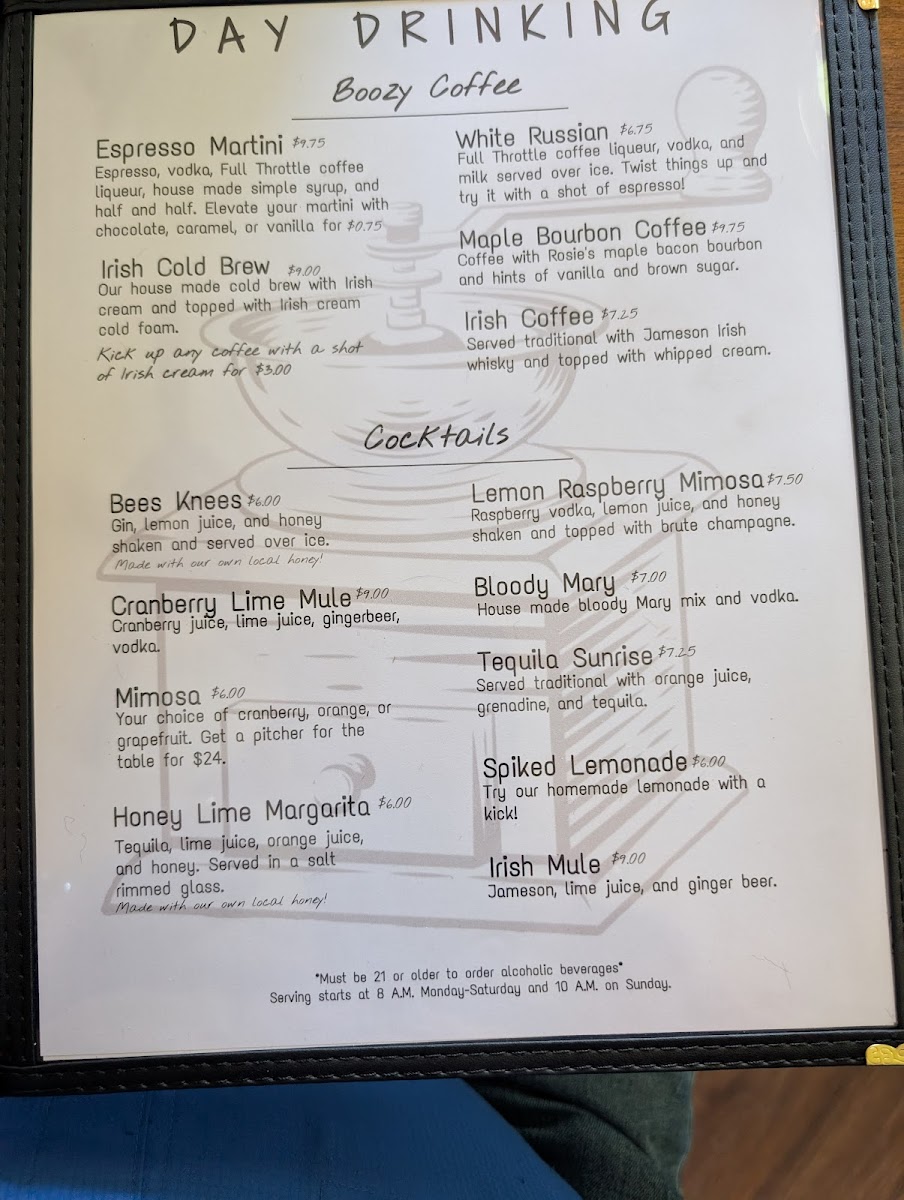 DAY DRINKING
Boozy Coffee
Espresso Martini $9.75
Espresso, vodka, Full Throttle coffee
liqueur, house made simple syrup, and
half and half. Elevate your martini with
chocolate, caramel, or vanilla for $0.75
Irish Cold Brew $9.00
Our house made cold brew with Irish
cream and topped with Irish cream
cold foam.
Kick up any coffee with a shot
of Irish cream for $3.00
White Russian $6.75
Full Throttle coffee liqueur, vodka, and
milk served over ice. Twist things up and
try it with a shot of espresso!
Maple Bourbon Coffee $9.75
Coffee with Rosie's maple bacon bourbon
and hints of vanilla and brown sugar.
Irish Coffee $7.25
Served traditional with Jameson Irish
whisky and topped with whipped cream.
Cocktails
Bees Knees $6.00
Gin, lemon juice, and honey
shaken and served over ice.
Made with our own local honey!
Cranberry Lime Mule $9.00
Cranberry juice, lime juice, gingerbeer,
vodka.
Mimosa $6.00
Your choice of cranberry, orange, or
grapefruit. Get a pitcher for the
table for $24.
Honey Lime Margarita $6.00
Tequila, lime juice, orange juice,
and honey. Served in a salt
rimmed glass.
Made with our own local honey!
Lemon Raspberry Mimosa $7.50
Raspberry vodka, lemon juice, and honey
shaken and topped with brute champagne.
Bloody Mary $7.00
House made bloody Mary mix and vodka.
Tequila Sunrise $7.25
Served traditional with orange juice,
grenadine, and tequila.
Spiked Lemonade $6.00
Try our homemade lemonade with a
kick!
Irish Mule $9.00
Jameson, lime juice, and ginger beer.
*Must be 21 or older to order alcoholic beverages*
Serving starts at 8 A.M. Monday-Saturday and 10 A.M. on Sunday.